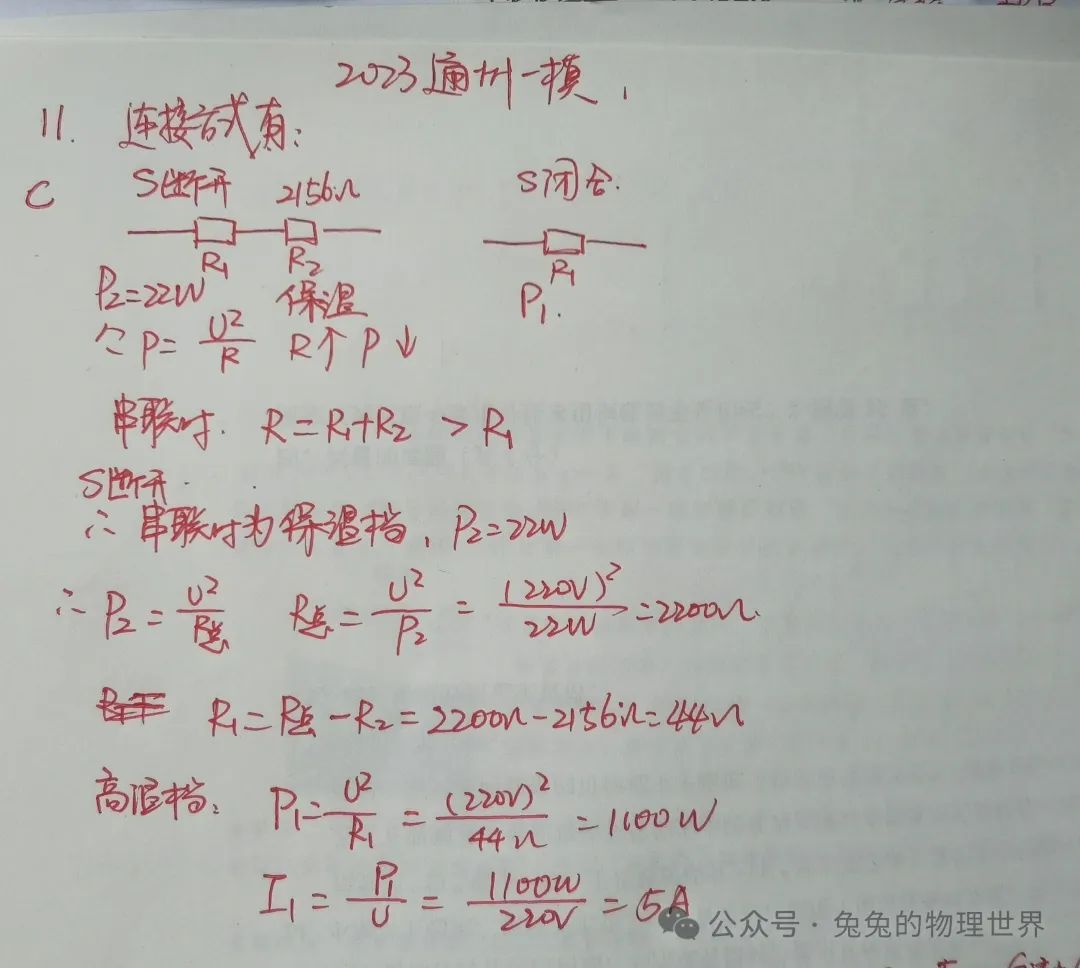 2023通州一模.
11. 连接方式有:
C S断开 2156Ω S闭合.
R₁ R₂ R₁
P₂=22W 保温 P₁.
∵P=U²/R R↑ P↓
串联时. R=R₁+R₂ > R₁
S断开.
∴串联时为保温档, P₂=22W
∴ P₂=U²/R总 R总=U²/P₂=(220V)²/22W=2200Ω.
R₁=R总-R₂=2200Ω-2156Ω=44Ω
高温档: P₁=U²/R₁=(220V)²/44Ω=1100W
I₁=P₁/U=1100W/220V=5A
公众号·兔兔的物理世界